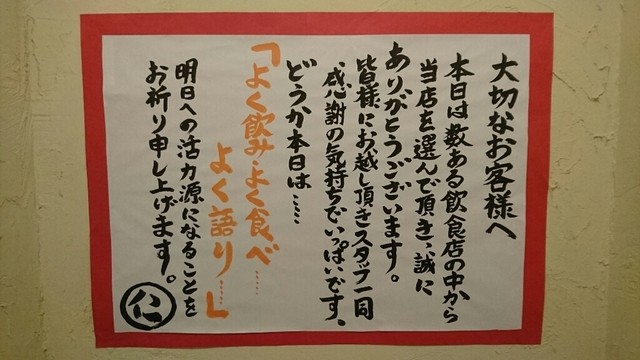 大切なお客様へ
本日は数ある飲食店の中から
当店を選んで頂き、誠に
ありがとうございます。
皆様にお越し頂きスタッフ一同
感謝の気持ちでいっぱいです。
どうか本日は……
「よく飲み・よく食べ……
よく語り……」
明日への活力源になることを
お祈り申し上げます。
仁